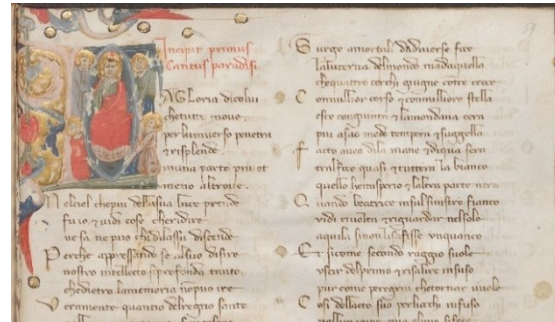 Incipit primus
Cantus paradisi
LA Gloria dicolui
che tutto move
per luniverso penetra
et risplende
in una parte piu et
meno altrove
Nel ciel che piu dellasua luce prende
fu io et vidi cose che ridire
ne sa ne puo chi dilassu discende
Perche appressando se al suo disire
nostro intelletto si profonda tanto
che dietro lamemoria non puo ire
Veramente quantio delregno santo
Surge amortali dadiverse foce
lalucerna delmondo madaquella
che quattro cerchi giugne contre croce
Con miglior corso et con migliore stella
esce congiunta et lamondana cera
piu asuo modo tempera et suggella
Fatto avea dila mane et diqua sera
tal foce quasi et tutto era la bianco
quello hemisperio et laltra parte nera
Quando beatrice insulsinistro fianco
vidi rivolta et riguardar nelsole
aquila si non lisaffisse unquanco
Et si come secondo raggio suole
uscir delprimo et risalire insuso
pur come peregrin che tornar vuole
Cosi dellatto suo per liochi infuso